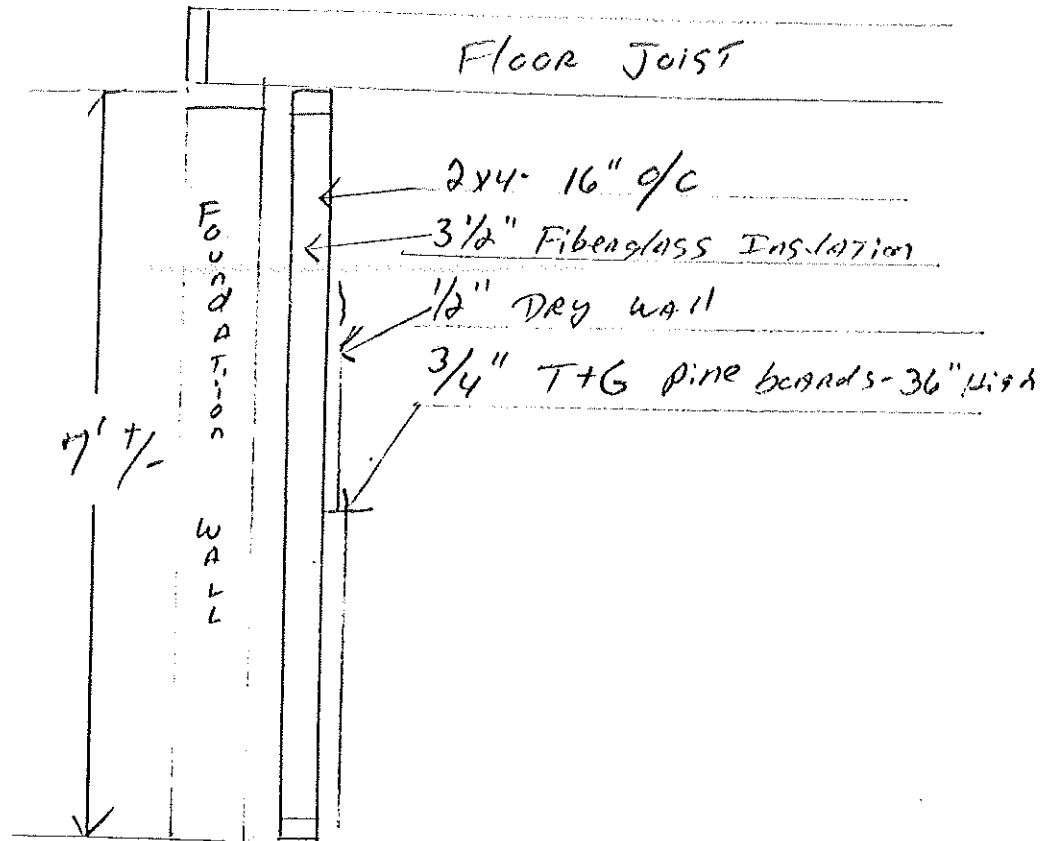 Floor Joist
2x4- 16" o/c
3 1/2" Fiberglass Inslation
1/2" Dry wall
3/4" T+G pine boards-36" High
Foundation Wall
7' +/-